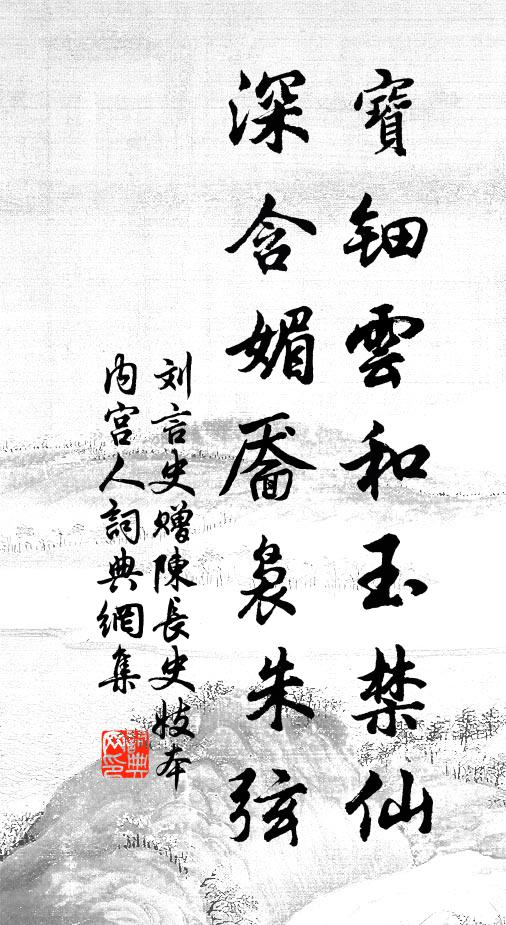 寶鈿雲和玉禁仙
深含媚靨袅朱弦
刘言史赠陳長史妓本
内宫人詞典網集